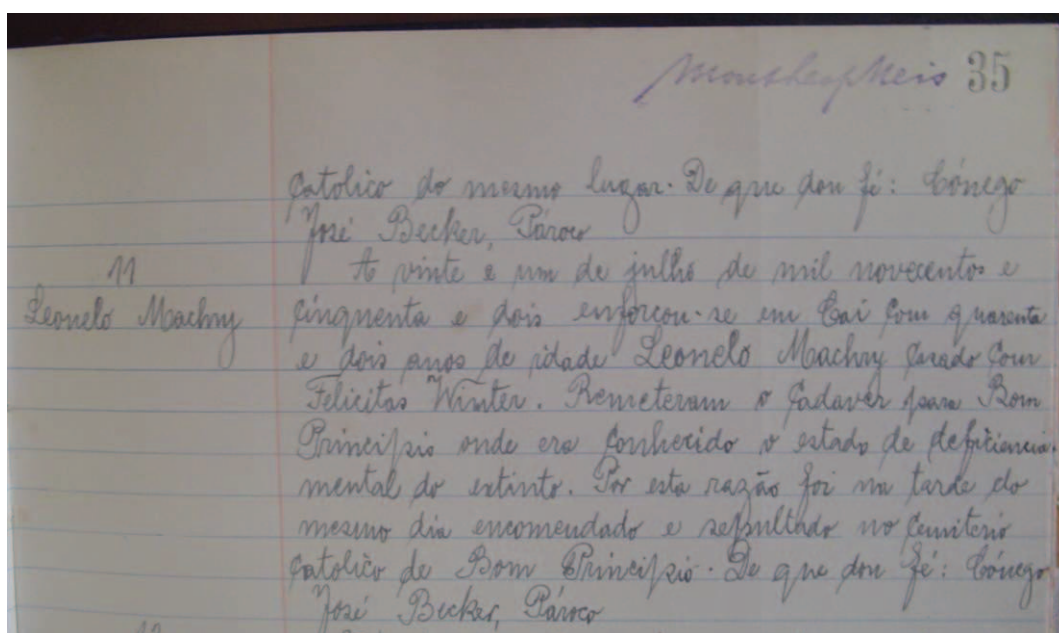 35
Católico do mesmo lugar. De que dou fé: Cónego
José Becker, Pároco
11
A vinte e um de julho de mil novecentos e
Leonelo Machry
Cinquenta e dois enforcou-se em Caí com quarenta
e dois anos de idade Leonelo Machry Casado Com
Felicitas Winter. Remeteram o Cadaver para Bom
Principio onde era Conhecido o estado de deficiencia
mental do extinto. Por esta razão foi na tarde do
mesmo dia encomendado e sepultado no Cemiterio
Catolico de Bom Principio. De que dou fé: Cónego
José Becker, Pároco